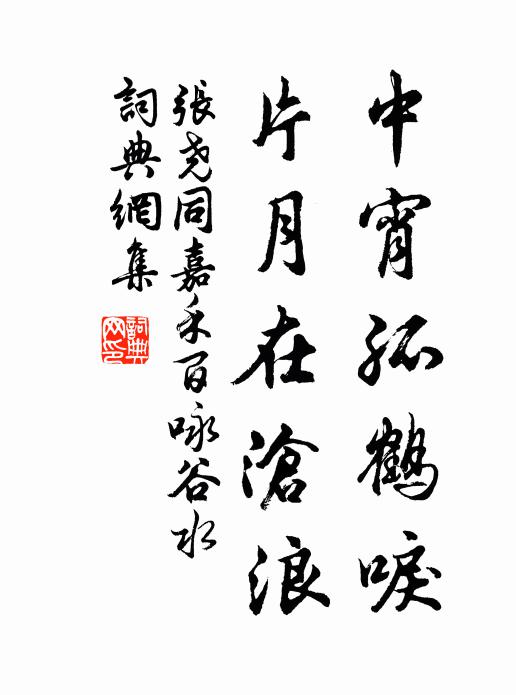 中宵孤鶴唳
片月在滄浪
張尧同嘉禾百咏谷水
詞典網集
詞典
网印